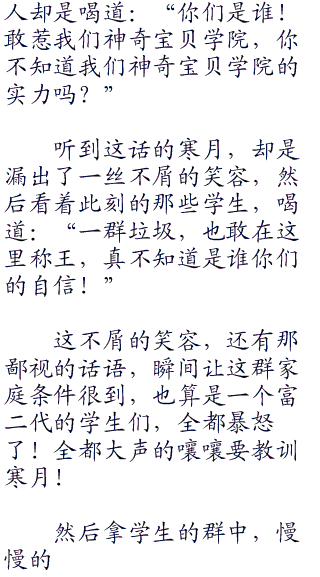 人却是喝道：“你们是谁！
敢惹我们神奇宝贝学院，你
不知道我们神奇宝贝学院的
实力吗？”
听到这话的寒月，却是
漏出了一丝不屑的笑容，然
后看着此刻的那些学生，喝
道：“一群垃圾，也敢在这
里称王，真不知道是谁你们
的自信！”
这不屑的笑容，还有那
鄙视的话语，瞬间让这群家
庭条件很到，也算是一个富
二代的学生们，全都暴怒
了！全都大声的嚷嚷要教训
寒月！
然后拿学生的群中，慢
慢的